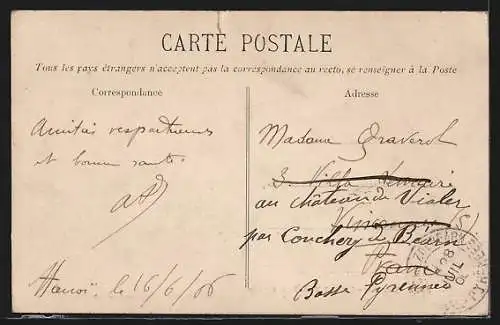 CARTE POSTALE
Tous les pays étrangers n'acceptent pas la correspondance au recto, se renseigner à la Poste
Correspondance
Adresse
Amitiés respectueuses
et bonne santé.
Hanoï, le 16/6/06
Madame Graverol
3 Villa
au château de Vialer
Vincennes
par Conchez de Béarn
France
Basse Pyrennée
28